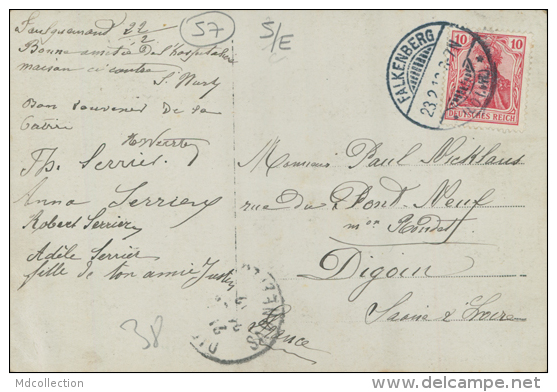 Faulquemont 22/2
57
S/E
Bonne amitié de l'hospitalière
maison ci contre
Bon souvenir de sa
Th. Serrier
Anna Serrier
Robert Serrier
Adèle Serrier
fille de ton amie
38
FALKENBERG
23.2.12
10 10
DEUTSCHES REICH
Monsieur Paul Nicklaus
rue du Pont-Neuf
Digoin
Saône & Loire
France
mdcollection
http://mdcollection.delcampe.net